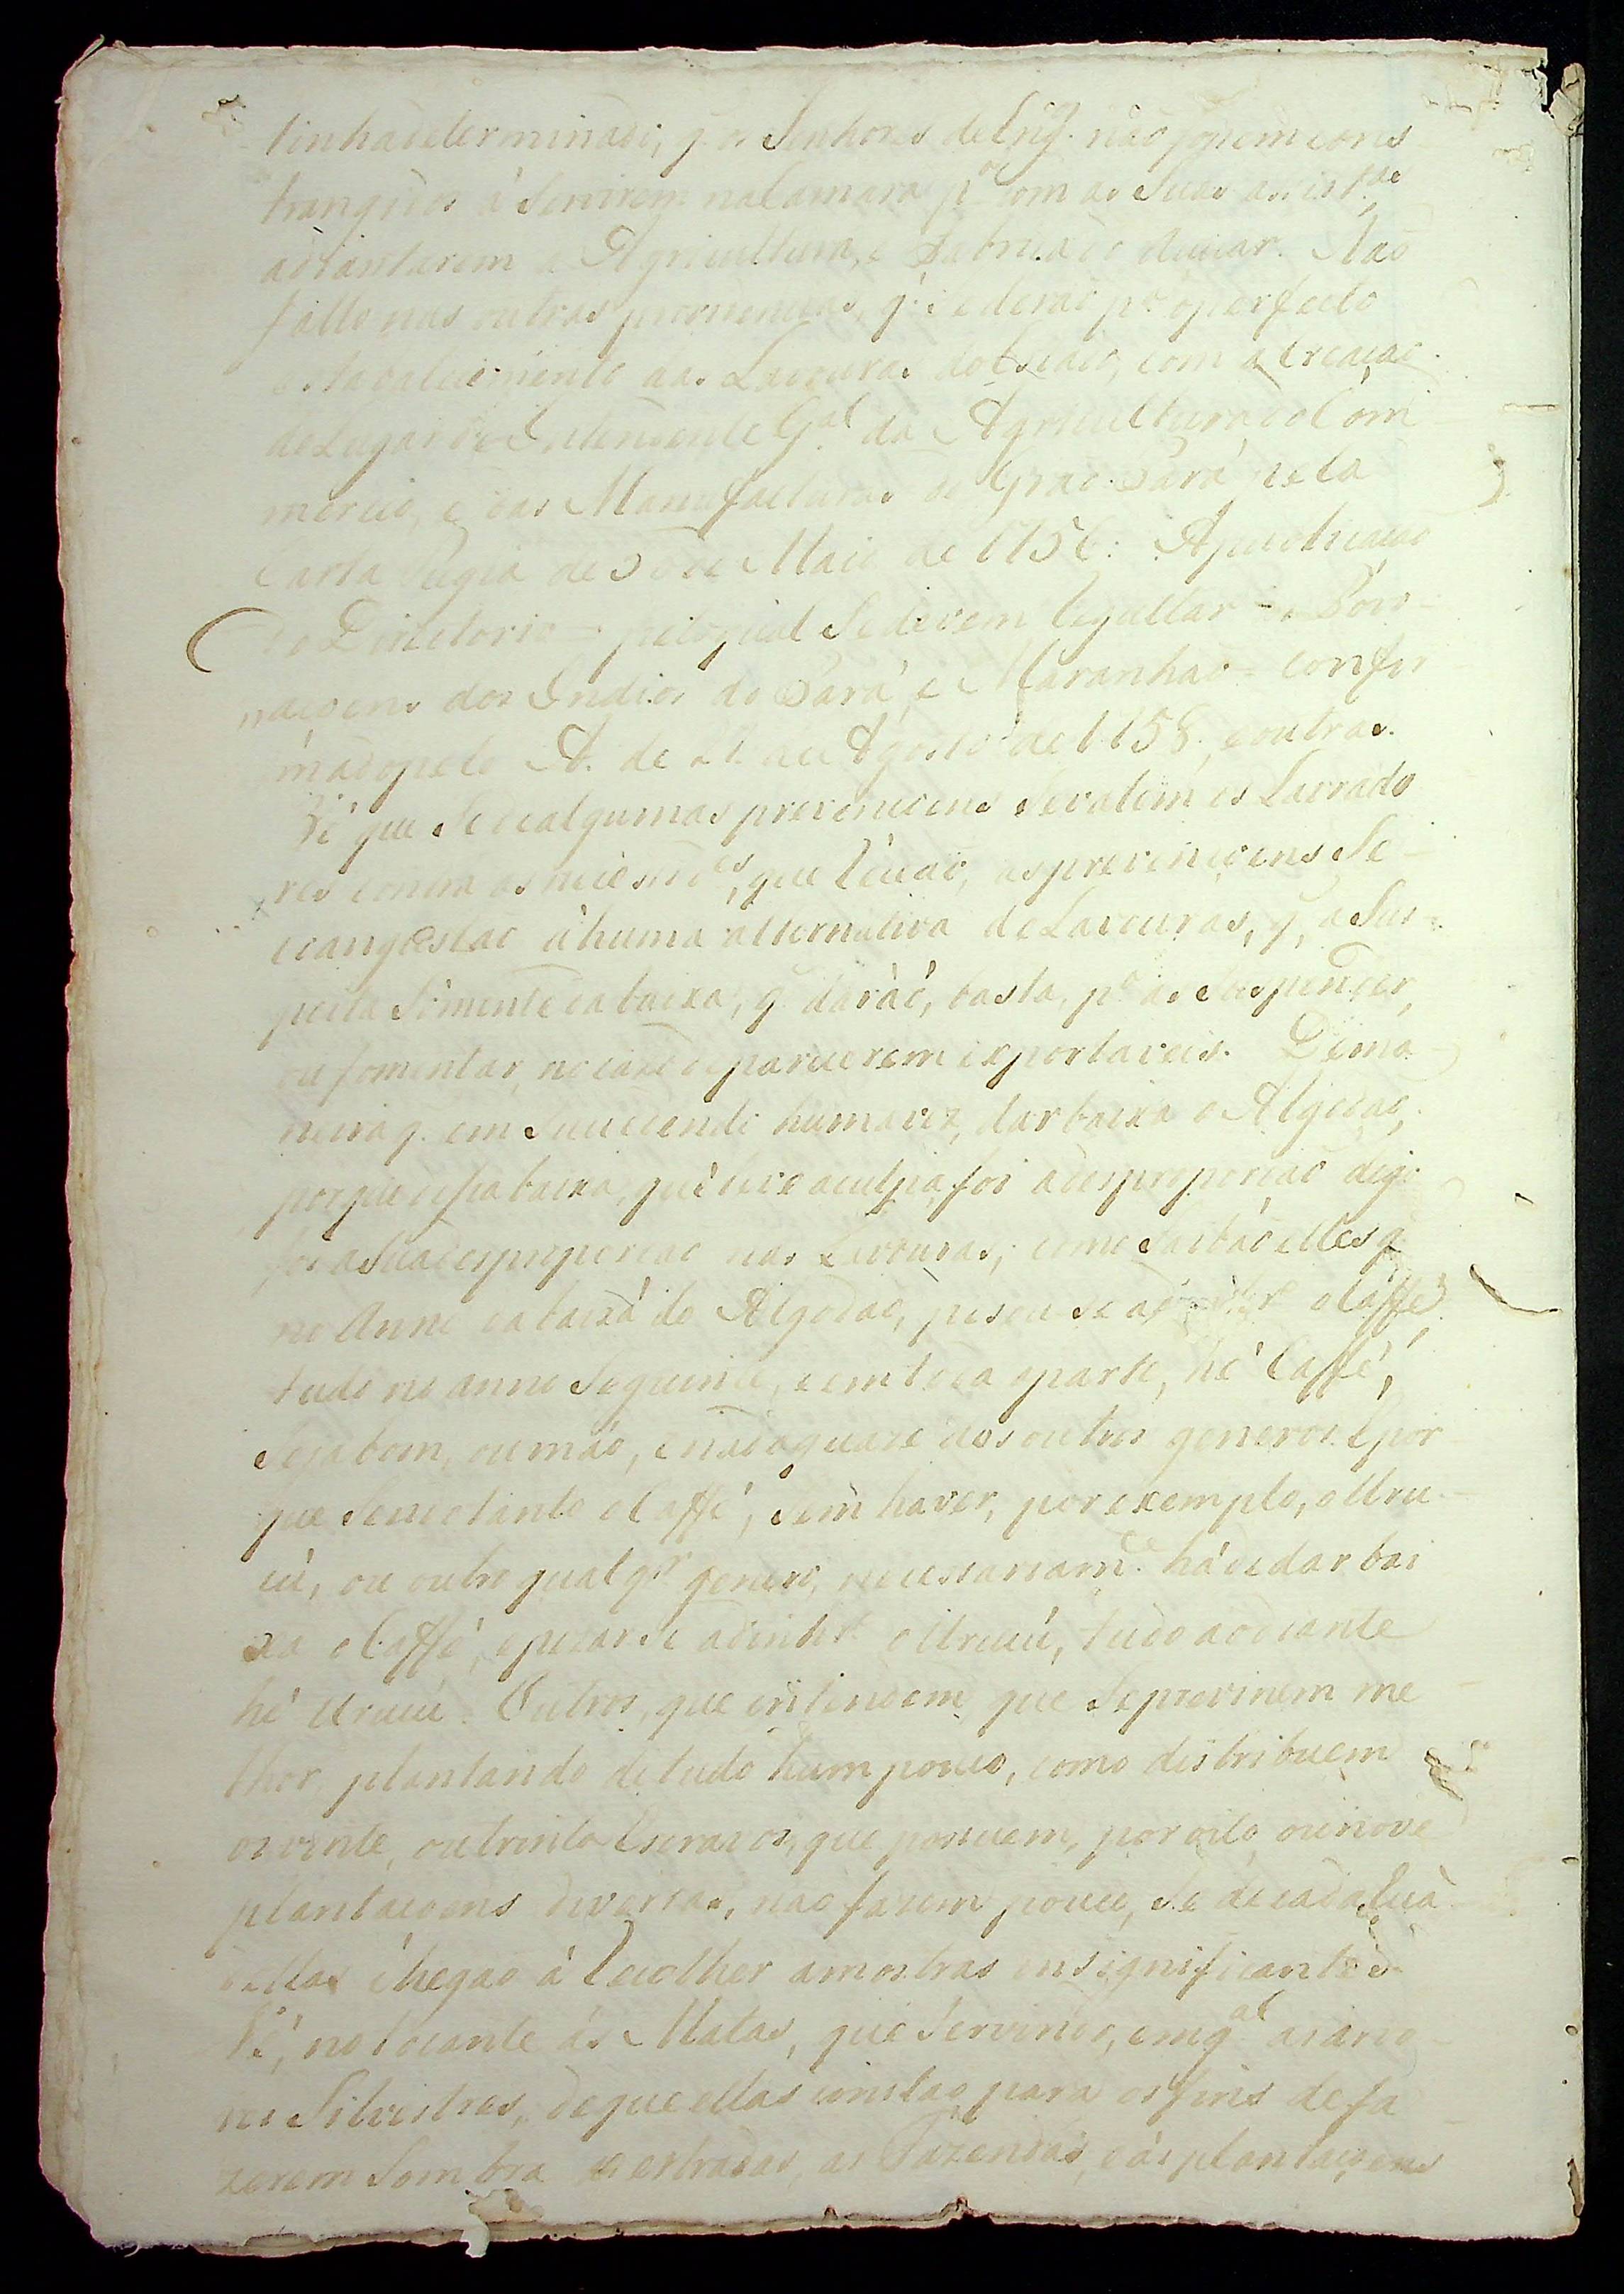 tinha determinado, q. os Senhores de Eng. não fossem cons
trangidos à Servirem na Camara p.ª com as Suas assist.as
adiantarem a Agricultura, e Fabrica do Assucar. Não
fallo nas outras providencias, q. se derão p.ª o perfeito
estabalecimento das Lavouras do Estado, com a creação
do Lugar de Intendente G.al da Agricultura do Com
mercio, e das Manufacturas do Grão Pará pela
Carta Regia de de Maio de 1756: A publicação
do Directorio = pelo qual Se devem regullar as Povo
açoens dos Indios do Pará, e Maranhão = confir
mado pelo A. de 17 de Agosto de 1758, e outras.
Vê que Se de algumas prevençoens Se valem os Lavrado
res contra os que as prevençoens Se
à huma alternativa de Lavouras, q, a Sus
peita Sómente da baixa, q darão, basta, p.ª as Suspender,
ou fomentar, no caso de parecerem exportaveis. De ma
neira q. em Succedendo huma vez, dar baixa o Algodão,
porque dessa baixa, que teve a culpa, foi a desproporção digo
foi a Sua desproporção nas Lavouras, como Saibão elles q.
no Anno da baixa do Algodão, o Caffé,
tudo no anno Seguinte, e em toda a parte, hé Caffé,
Seja bom, ou máo, e nada quaze dos outros generos. E por
que Sendo tanto o Caffé, sem haver, por exemplo, o Uru
cú, ou outro qualq.r genero, necessariam.te há de dar bai
xa o Caffé, e o Urucú, tudo ao diante
hé Urucú. Outros, que entendem, que Se previnem me
lhor, plantando de tudo hum pouco, como distribuem
os vinte, ou trinta Escravos, que possuem, por oito, ou nove
plantaçoens diversas, não fazem pouco, Se de cada huã
dellas chegão à recolher amostras insignificantes.
Vê, no tocante ás Matas, que Servindo, em g.al as arvo
res Silvestres, de que ellas constão para os fins de fa
zerem Sombra ás estradas, ás Fazendas, e ás plantaçoens